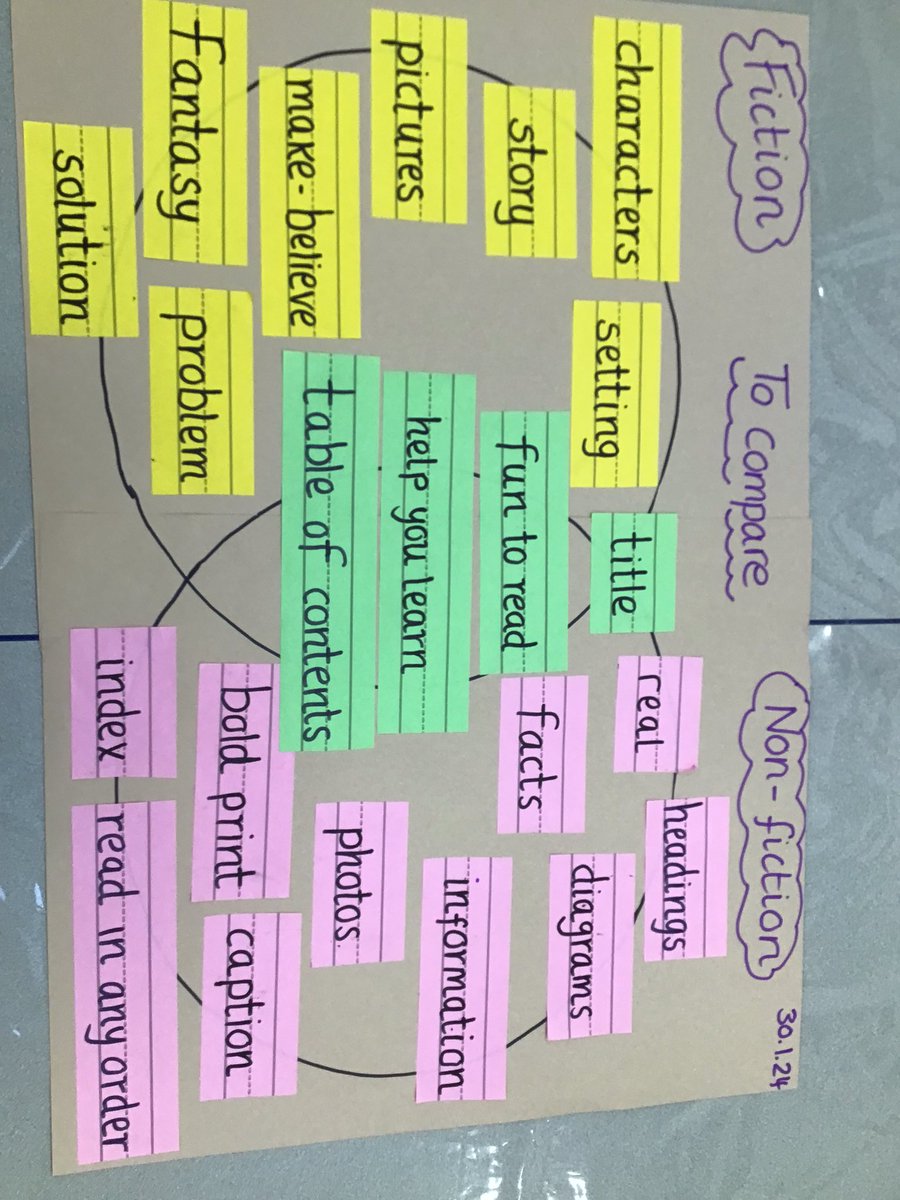 Fiction
To compare
Non-fiction
30.1.24
characters
story
pictures
make-believe
fantasy
solution
setting
problem
title
fun to read
help you learn
table of contents
real
headings
facts
diagrams
information
photos
bold print
caption
index
read in any order